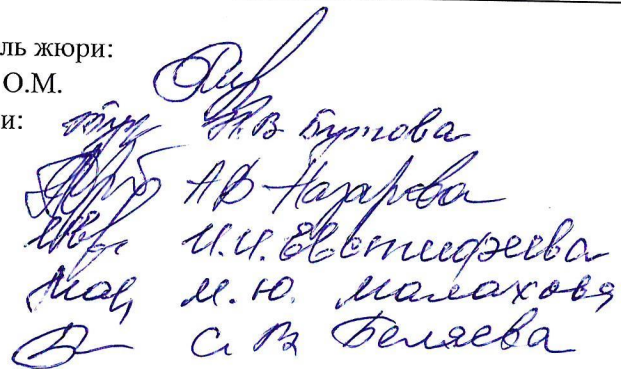 ль жюри:
О.М.
и:
А В Назарова
И.И. Евстифеева
М.Ю. Малахова
С В Беляева